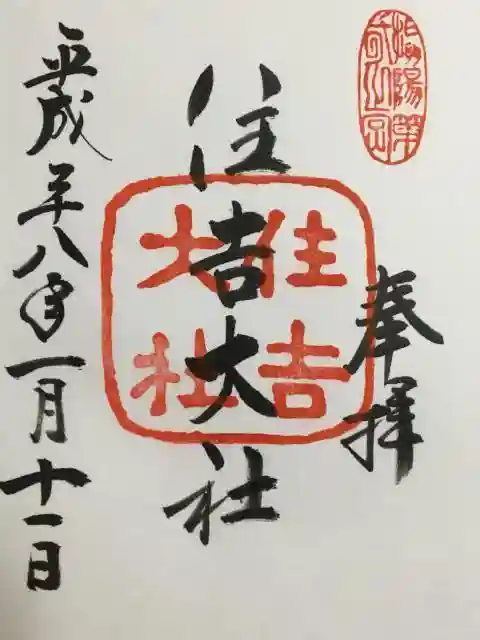 奉拝
住吉大社
住吉
大社
平成二十八年一月十一日